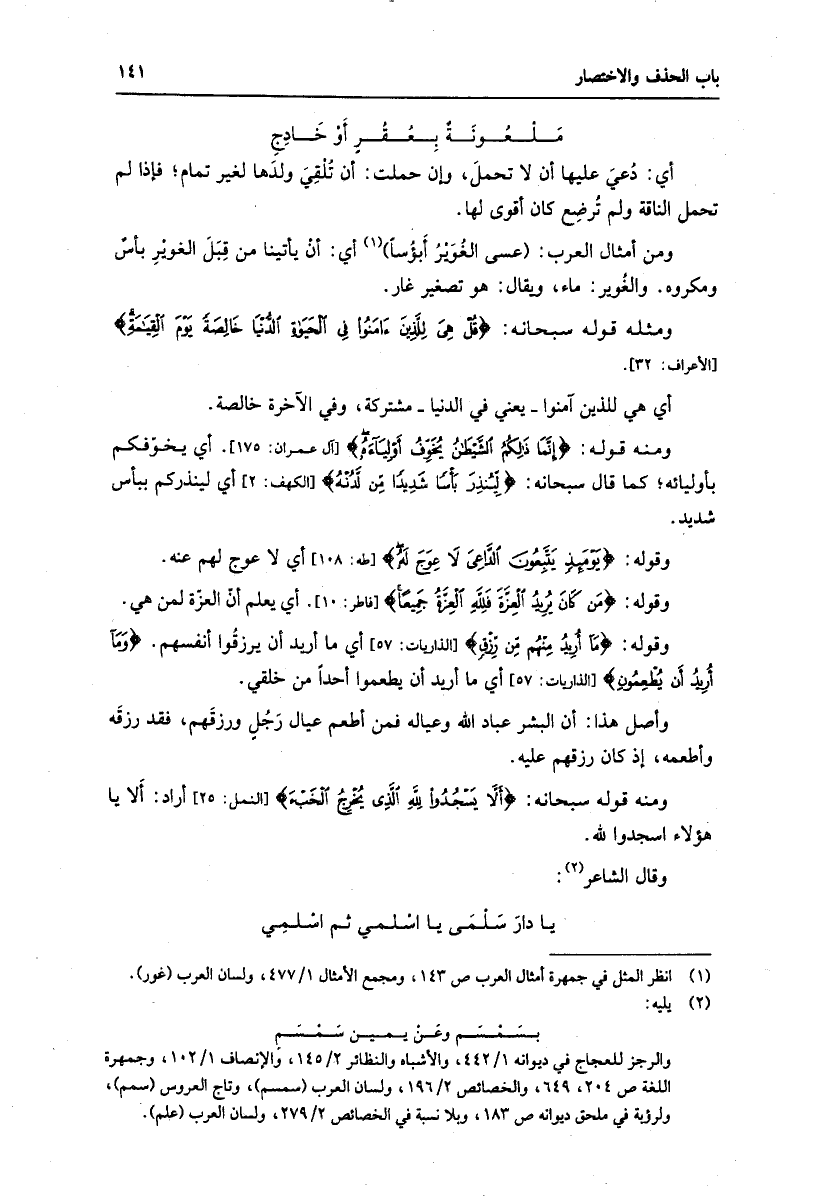 باب الحذف والاختصار ١٤١
مَـلْـعُـونَـةٌ بِـعُـقُـرٍ أَوْ خَـادِجِ
أي: دُعيَ عليها أن لا تحملَ، وإن حملت: أن تُلْقِيَ ولدَها لغير تمام؛ فإذا لم
تحمل الناقة ولم تُرضِع كان أقوى لها.
ومن أمثال العرب: (عسى الغُوَيْرُ أَبؤُساً)(١) أي: أنْ يأتينا من قِبَلَ الغويْرِ بأسٌ
ومكروه. والغُوير: ماء، ويقال: هو تصغير غار.
ومثله قوله سبحانه: ﴿قُلْ هِىَ لِلَّذِينَ ءَامَنُوا۟ فِى ٱلْحَيَوٰةِ ٱلدُّنْيَا خَالِصَةً يَوْمَ ٱلْقِيَٰمَةِۗ﴾
[الأعراف: ٣٢].
أي هي للذين آمنوا ـ يعني في الدنيا ـ مشتركة، وفي الآخرة خالصة.
ومنه قوله: ﴿إِنَّمَا ذَٰلِكُمُ ٱلشَّيْطَٰنُ يُخَوِّفُ أَوْلِيَآءَهُۥ﴾ [آل عمران: ١٧٥]. أي يخوّفكم
بأوليائه؛ كما قال سبحانه: ﴿لِّيُنذِرَ بَأْسًا شَدِيدًا مِّن لَّدُنْهُ﴾ [الكهف: ٢] أي لينذركم ببأس
شديد.
وقوله: ﴿يَوْمَئِذٍ يَتَّبِعُونَ ٱلدَّاعِىَ لَا عِوَجَ لَهُۥۖ﴾ [طه: ١٠٨] أي لا عوج لهم عنه.
وقوله: ﴿مَن كَانَ يُرِيدُ ٱلْعِزَّةَ فَلِلَّهِ ٱلْعِزَّةُ جَمِيعًاۚ﴾ [فاطر: ١٠]. أي يعلم أنّ العزّة لمن هي.
وقوله: ﴿مَآ أُرِيدُ مِنْهُم مِّن رِّزْقٍ﴾ [الذاريات: ٥٧] أي ما أريد أن يرزقُوا أنفسهم. ﴿وَمَآ
أُرِيدُ أَن يُطْعِمُونِ﴾ [الذاريات: ٥٧] أي ما أريد أن يطعموا أحداً من خلقي.
وأصل هذا: أن البشر عباد الله وعياله فمن أطعم عيال رَجُلٍ ورزقَهم، فقد رزقَه
وأطعمه، إذ كان رزقهم عليه.
ومنه قوله سبحانه: ﴿أَلَّا يَسْجُدُوا۟ لِلَّهِ ٱلَّذِى يُخْرِجُ ٱلْخَبْءَ﴾ [النمل: ٢٥] أراد: أَلا يا
هؤلاء اسجدوا لله.
وقال الشاعر(٢):
يـا دارَ سَـلْـمَـى يـا اسْـلـمـي ثـم اسْـلـمِـي
(١) انظر المثل في جمهرة أمثال العرب ص ١٤٣، ومجمع الأمثال ٤٧٧/١، ولسان العرب (غور).
(٢) يليه:
بـسَـمْـسَـم وعَـنْ يـمـيـن سَـمْـسَـم
والرجز للعجاج في ديوانه ٤٤٢/١، والأشباه والنظائر ١٤٥/٢، والإنصاف ١٠٢/١، وجمهرة
اللغة ص ٢٠٤، ٦٤٩، والخصائص ١٩٦/٢، ولسان العرب (سمسم)، وتاج العروس (سمم)،
ولرؤبة في ملحق ديوانه ص ١٨٣، وبلا نسبة في الخصائص ٢٧٩/٢، ولسان العرب (علم).